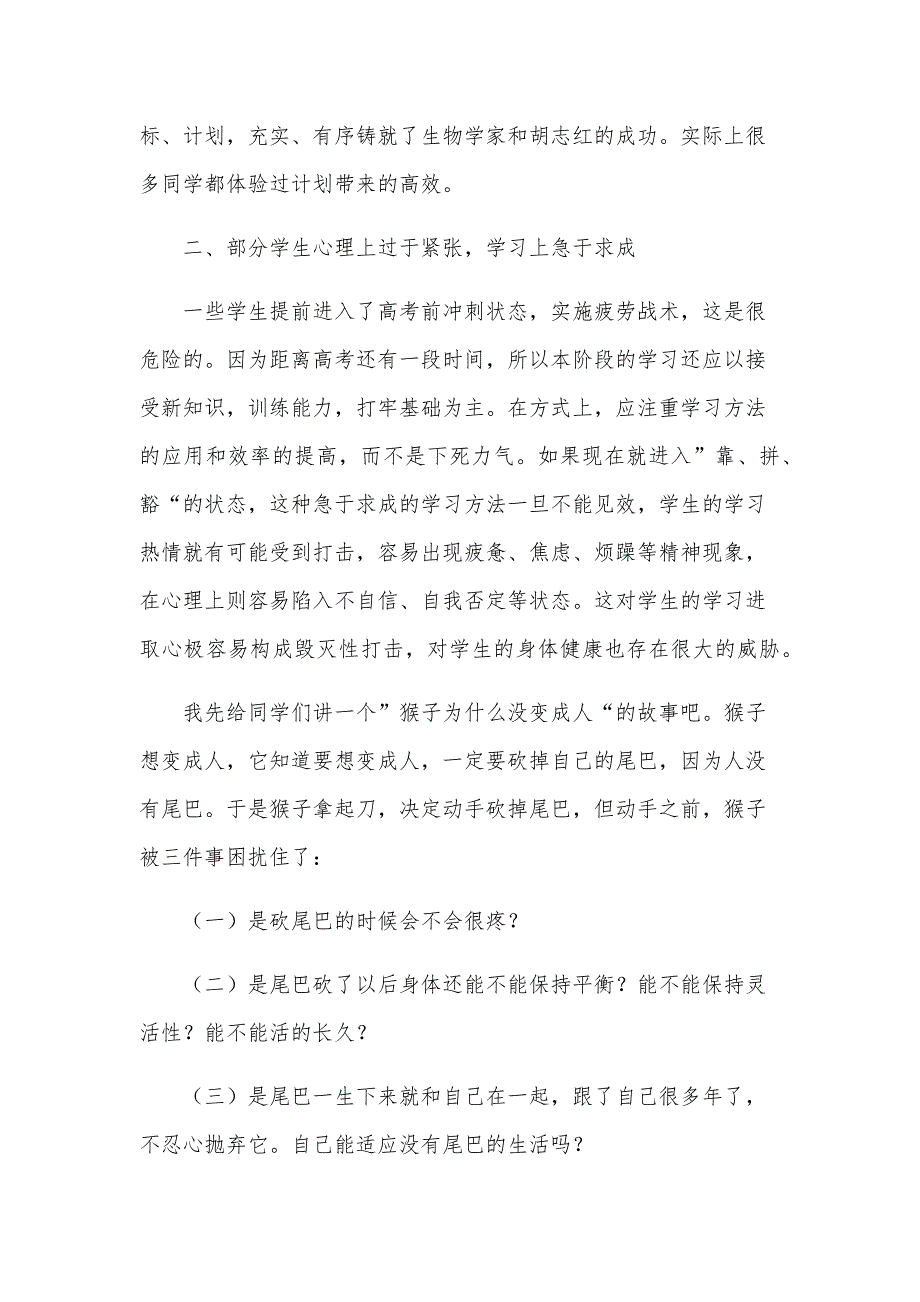 标、计划，充实、有序铸就了生物学家和胡志红的成功。实际上很
多同学都体验过计划带来的高效。
二、部分学生心理上过于紧张，学习上急于求成
一些学生提前进入了高考前冲刺状态，实施疲劳战术，这是很
危险的。因为距离高考还有一段时间，所以本阶段的学习还应以接
受新知识，训练能力，打牢基础为主。在方式上，应注重学习方法
的应用和效率的提高，而不是下死力气。如果现在就进入”靠、拼、
豁“的状态，这种急于求成的学习方法一旦不能见效，学生的学习
热情就有可能受到打击，容易出现疲惫、焦虑、烦躁等精神现象，
在心理上则容易陷入不自信、自我否定等状态。这对学生的学习进
取心极容易构成毁灭性打击，对学生的身体健康也存在很大的威胁。
我先给同学们讲一个”猴子为什么没变成人“的故事吧。猴子
想变成人，它知道要想变成人，一定要砍掉自己的尾巴，因为人没
有尾巴。于是猴子拿起刀，决定动手砍掉尾巴，但动手之前，猴子
被三件事困扰住了：
（一）是砍尾巴的时候会不会很疼？
（二）是尾巴砍了以后身体还能不能保持平衡？能不能保持灵
活性？能不能活的长久？
（三）是尾巴一生下来就和自己在一起，跟了自己很多年了，
不忍心抛弃它。自己能适应没有尾巴的生活吗？